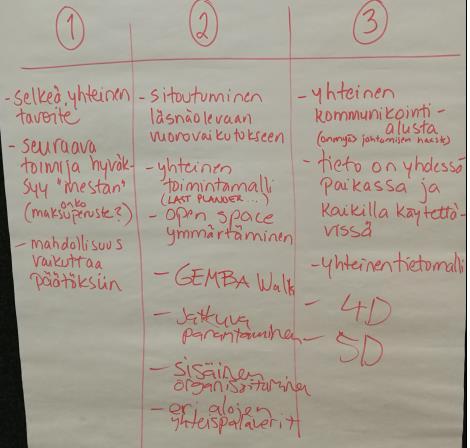 1
- selkeä, yhteinen
tavoite
- seuraava
toimija hyväk-
syy "mestan"
onko
(maksuperuste?)
- mahdollisuus
vaikuttaa
päätöksiin
2
- sitoutuminen
läsnäolevaan
vuorovaikutukseen
- yhteinen
toimintamalli
(LAST PLANNER...)
- open space
ymmärtäminen
- GEMBA Walk
- Jatkuva
parantaminen
- sisäinen
organisoituminen
- eri alojen
yhteispalaverit
3
- yhteinen
kommunikointi-
alusta
- tieto on yhdessä
paikassa ja
kaikilla käytettä-
vissä
- yhteinen tietomalli
- 4D
- 5D